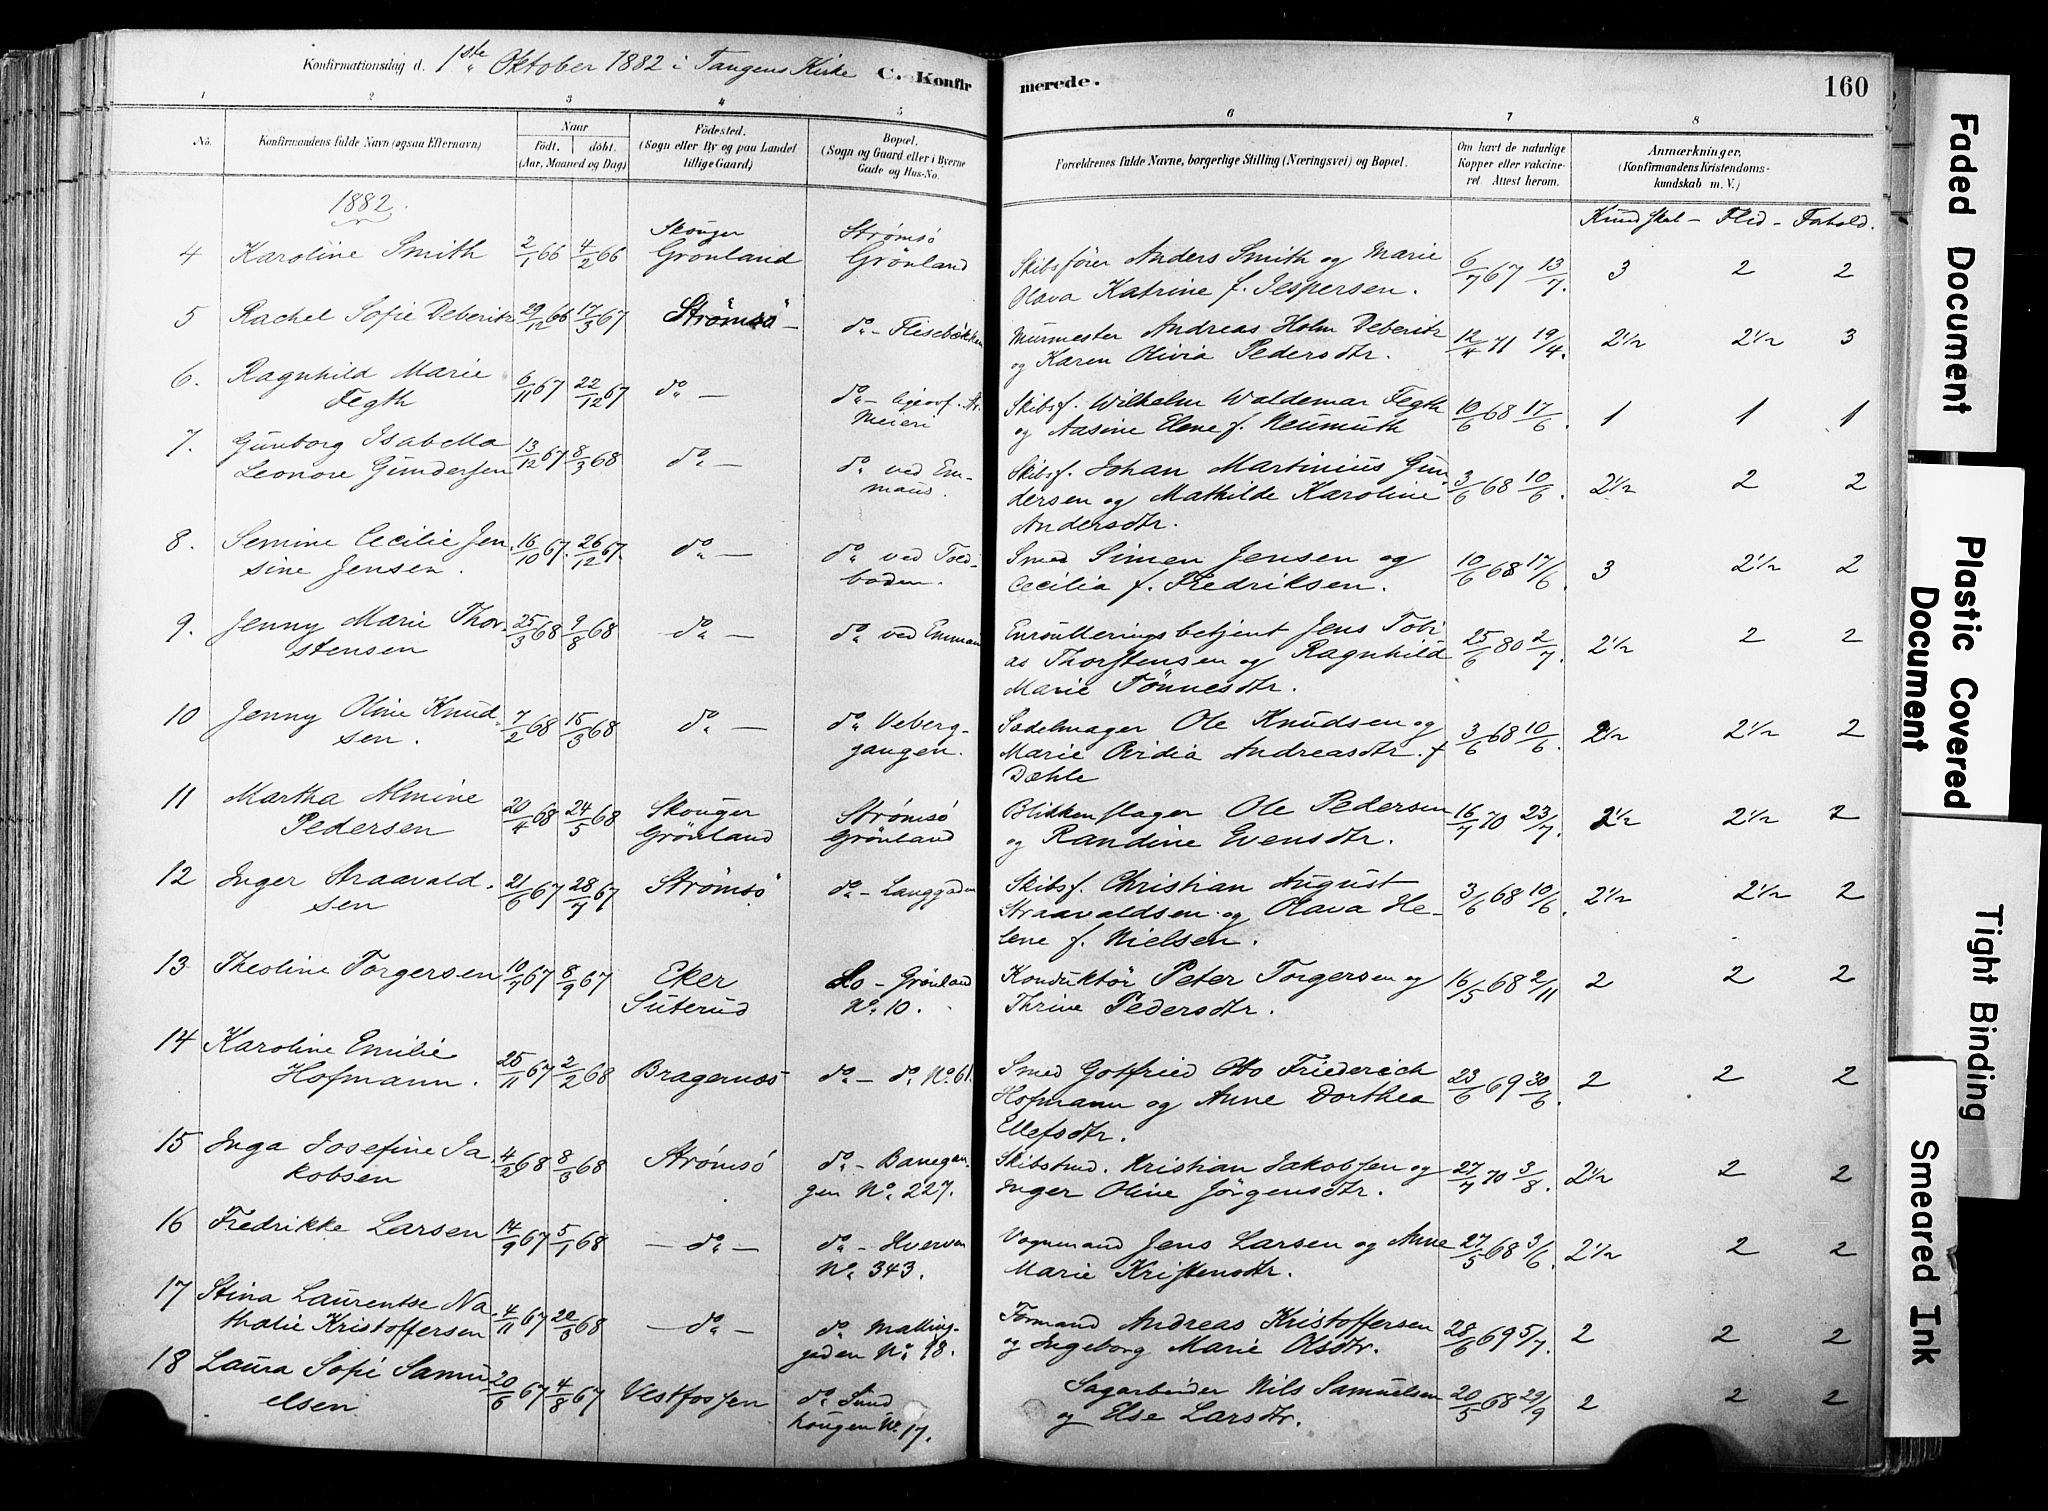 Konfirmationsdag d. 1ste Oktober 1882 i Tangens Kirke C. Konfir
merede. 160
1 2 3 4 5
6 7 8
No. Konfirmandens fulde Navn (ogsaa Efternavn) Naar født. døbt. (Aar, Maaned og Dag) Fødested. (Sogn eller By og paa Landet tillige Gaard) Bopæl. (Sogn og Gaard eller i Byerne Gade og Hus-No.
Forældrenes fulde Navne, borgerlige Stilling (Næringsvei) og Bopæl. Om havt de naturlige Kopper eller vakcineret. Attest herom. Anmærkninger, (Konfirmandens Kristendomskundskab m. V.)
1882.
Kundskab - Flid - Forhold.
4 Karoline Smith 2/1 66 4/2 66 Skouger Grönland Strømsö Grönland
Skibsfører Anders Smith og Marie
Olava Katrine f. Jespersen. 6/7 67 13/7. 3 2 2
5 Rachel Sofie Deberitz 29/12 66 17/3 67 Strømsö - do - Flisebækken
Murmester Andreas Holm Deberitz
og Karen Olivia Pedersdtr. 12/4 71 19/4. 2 1/2 2 1/2 3
6. Ragnhild Marie
Fegth 6/11 67 22/12 67 do - do - ligeovf. Str.
Meieri
Skibsf. Wilhelm Waldemar Fegth
og Aasine Elene f. Neumuth 10/6 68 17/6. 1 1 1
7. Gunborg Isabella
Leonore Gundersen 13/12 67 8/3 68 do - do ved Em-
maus.
Skibsf. Johan Martinius Gun
dersen og Mathilde Karoline
Andersdtr. 3/6 68 10/6. 2 1/2 2 2
8. Semine Cecilie Jen
sine Jensen. 16/10 67. 26/12 67. do - do ved Told-
boden.
Smed Simen Jensen og
Cecilia f. Fredriksen. 10/6 68 17/6. 3 2 1/2 2
9. Jenny Marie Thor
stensen 25/3 68 9/8 68 do - do ved Emmaus
Enroulleringsbetjent Jens Tobi
as Thorstensen og Ragnhild
Marie Tönnesdtr. 25/6 80 2/7. 2 1/2 2 2
10 Jenny Oline Knud-
sen. 7/2 68 15/3 68 do - do Veberg-
gangen.
Sadelmager Ole Knudsen og
Marie Ovidia Andreasdtr. f
Dæhle 3/6 68 10/6. 2 1/2 2 1/2 2
11 Martha Almine
Pedersen 20/4 68 24/5 68 Skouger
Grönland Strømsö
Grönland
Blikkenslager Ole Pedersen
og Randine Evensdtr. 16/7 70 23/7. 2 1/2 2 1/2 2
12 Inger Straavald-
sen 21/6 67 28/7 67 Strømsö do - Langgaden
Skibsf. Christian August
Straavaldsen og Olava He-
lene f. Nielsen. 3/6 68 10/6. 2 1/2 2 1/2 2
13 Theoline Torgersen 10/7 67 8/9 67 Eker
Suterud do - Grönland
No. 10.
Konduktör Peter Torgersen og
Thrine Pedersdtr. 16/5 68 2/11 2 2 2
14 Karoline Emilie
Hofmann. 25/11 67 2/2 68 Bragernæs do - do No 61.
Smed Gotfried Otto Friederich
Hofmann og Anne Dorthea
Ellefsdtr. 23/6 69 30/6. 2 2 2
15 Inga Josefine Ja
kobsen 4/2 68 8/3 68 Strømsö do - Banegan
gen No. 227.
Skibstmd. Kristian Jakobsen og
Inger Oline Jörgensdtr. 27/7 70 3/8. 2 1/2 2 2
16 Fredrikke Larsen 14/9 67 5/1 68 - do - do - Hverven
No. 343.
Vognmand Jens Larsen og Anne
Marie Kristensdtr. 27/5 68 3/6. 2 1/2 2 2
17 Stina Laurentse Na
thalie Kristoffersen 4/11 67 20/3 68 - do - do Mallings-
gaden No. 98.
Formand Andreas Kristoffersen
og Ingeborg Marie Olsdtr. 28/6 69 5/7. 2 2 2
18 Laura Sofi Samu
elsen 20/6 67 4/8 67 Vestfossen do Sund
hougen No. 17.
Sagarbeider Nils Samuelsen
og Else Larsdtr. 20/5 68 29/9 2 2 2
Faded Document
Plastic Covered Document
Tight Binding
Smeared Ink